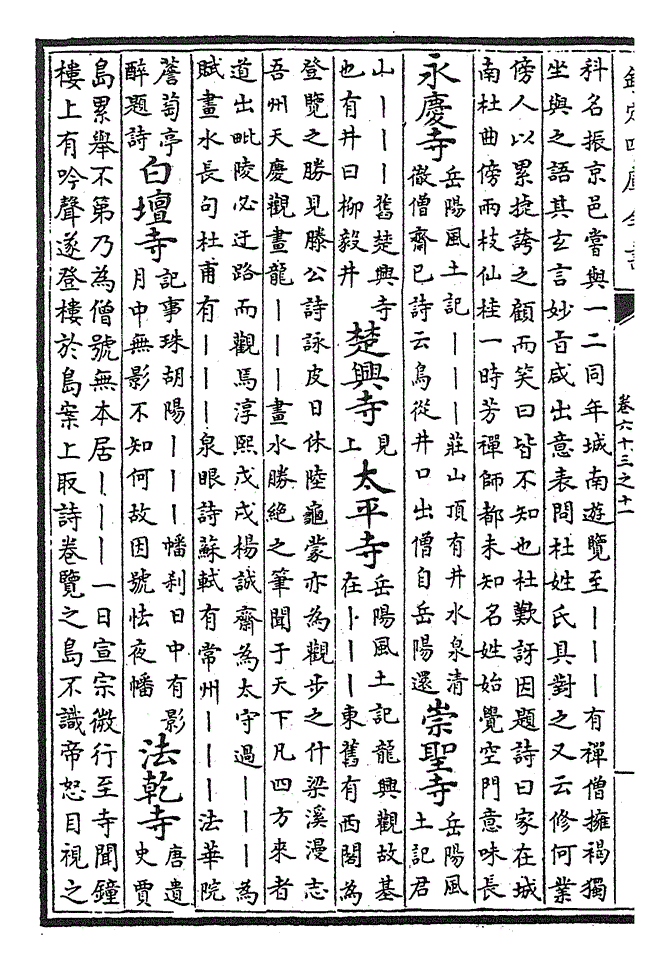 欽定四庫全書
卷六十三之十一
科名振京邑嘗與一二同年城南遊覽至丨丨丨有禪僧擁褐獨
坐與之語其玄言妙㫖咸出意表問杜姓氏具對之又云修何業
傍人以累捷誇之顧而笑曰皆不知也杜歎訝因題詩曰家在城
南杜曲傍兩枝仙桂一時芳禪師都未知名姓始覺空門意味長
永慶寺
岳陽風土記丨丨丨莊山頂有井水泉清
徹僧齋已詩云烏從井口出僧自岳陽還
崇聖寺
岳陽風
土記君
山丨丨丨舊楚興寺
也有井曰柳毅井
楚興寺
見
上
太平寺
岳陽風土記龍興觀故基
在丨丨丨東舊有西閣為
登覽之勝見滕公詩詠皮日休陸龜蒙亦為觀步之什梁溪漫志
吾州天慶觀畫龍丨丨丨畫水勝絕之筆聞于天下凡四方來者
道出毗陵必迂路而觀馬淳熙戊戌楊誠齋為太守過丨丨丨為
賦畫水長句杜甫有丨丨丨泉眼詩蘇軾有常州丨丨丨法華院
薝蔔亭
醉題詩
白壇寺
記事珠胡陽丨丨丨幡刹日中有影
月中無影不知何故因號怯夜幡
法乾寺
唐遺
史賈
島累舉不第乃為僧號無本居丨丨丨一日宣宗微行至寺聞鐘
樓上有吟聲遂登樓於島案上取詩卷覽之島不識帝怒目視之